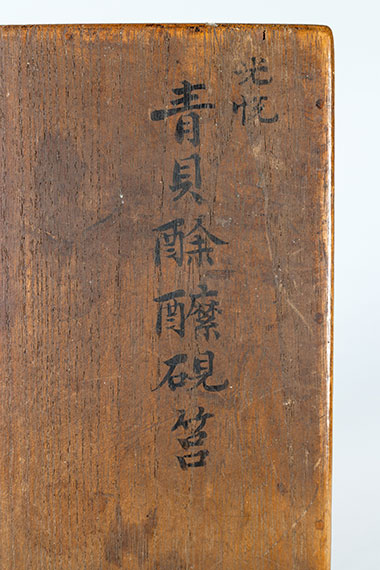 光悦
青貝酴醾硯筥